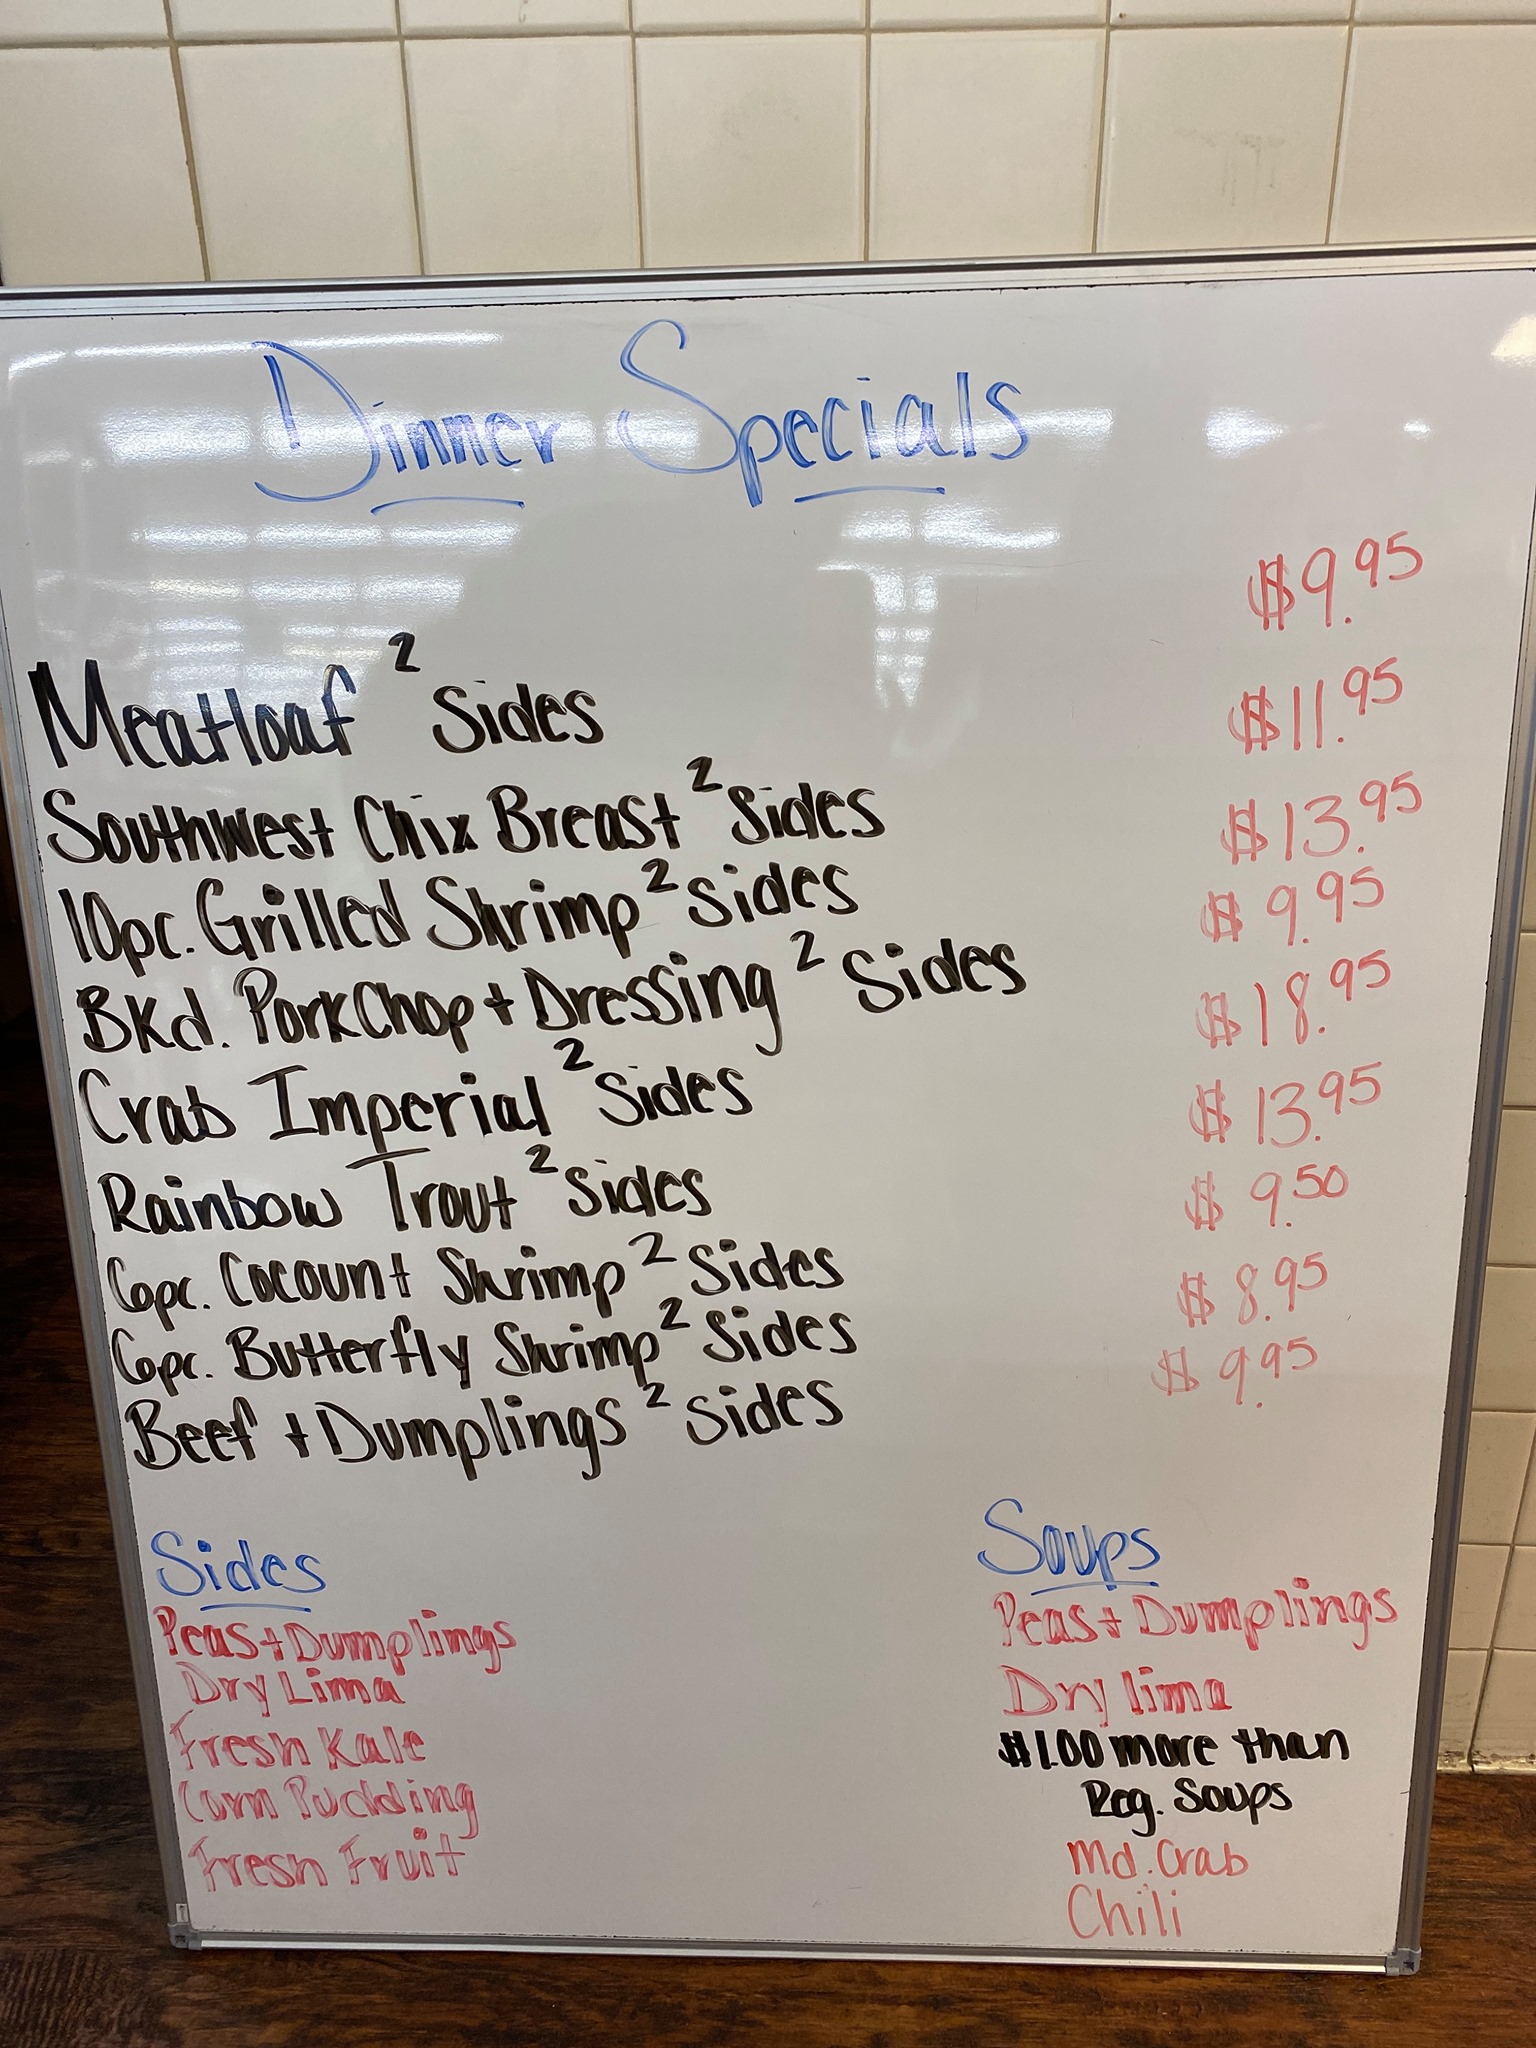 Dinner Specials
Meatloaf 2 Sides $9.95
Southwest Chix Breast 2 Sides $11.95
10pc. Grilled Shrimp 2 Sides $13.95
BKd. PorkChop + Dressing 2 Sides $9.95
Crab Imperial 2 Sides $18.95
Rainbow Trout 2 Sides $13.95
6pc. Cocount Shrimp 2 Sides $9.50
6pc. Butterfly Shrimp 2 Sides $8.95
Beef + Dumplings 2 Sides $9.95
Sides
Peas + Dumplings
Dry Lima
Fresh Kale
Corn Pudding
Fresh Fruit
Soups
Peas + Dumplings
Dry lima
$1.00 more than
Reg. Soups
Md. Crab
Chili